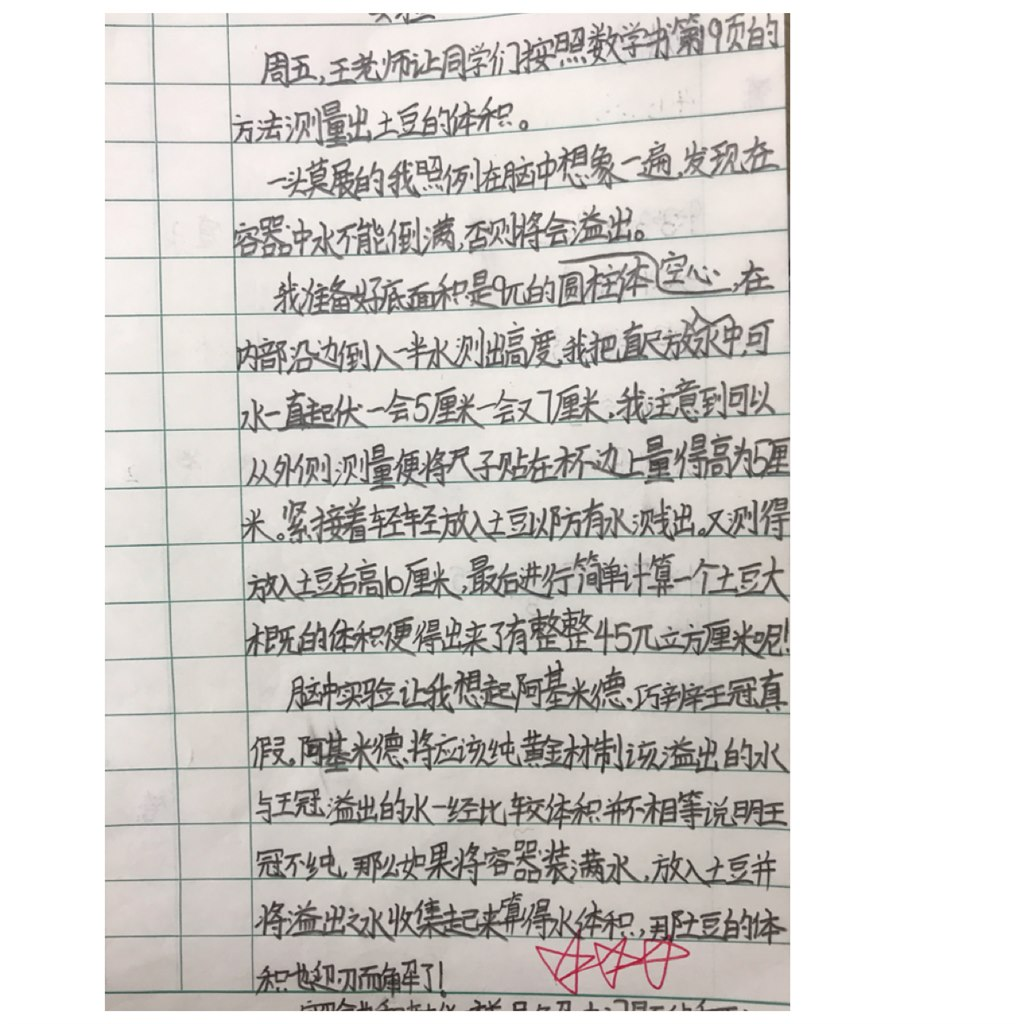 周五,王老师让同学们按照数学书第9页的
方法测量出土豆的体积。
一头莫展的我照例在脑中想象一遍,发现在
容器中水不能倒满,否则将会溢出。
我准备好底面积是9π的圆柱体空心,在
内部沿边倒入一半水测出高度,我把直尺放水中,可
水一直起伏一会5厘米一会又7厘米,我注意到可以
从外侧测量便将尺子贴在杯边上量得高为5厘
米。紧接着轻轻放入土豆以防有水溅出。又测得
放入土豆后高10厘米,最后进行简单计算一个土豆大
概的体积便得出来了有整整45π立方厘米呢!
脑中实验让我想起阿基米德巧辨王冠真
假。阿基米德将应该纯黄金材制该溢出的水
与王冠溢出的水一经比较体积并不相等说明王
冠不纯,那么如果将容器装满水,放入土豆并
将溢出之水收集起来算得水体积,那土豆的体
积也迎刃而解了!